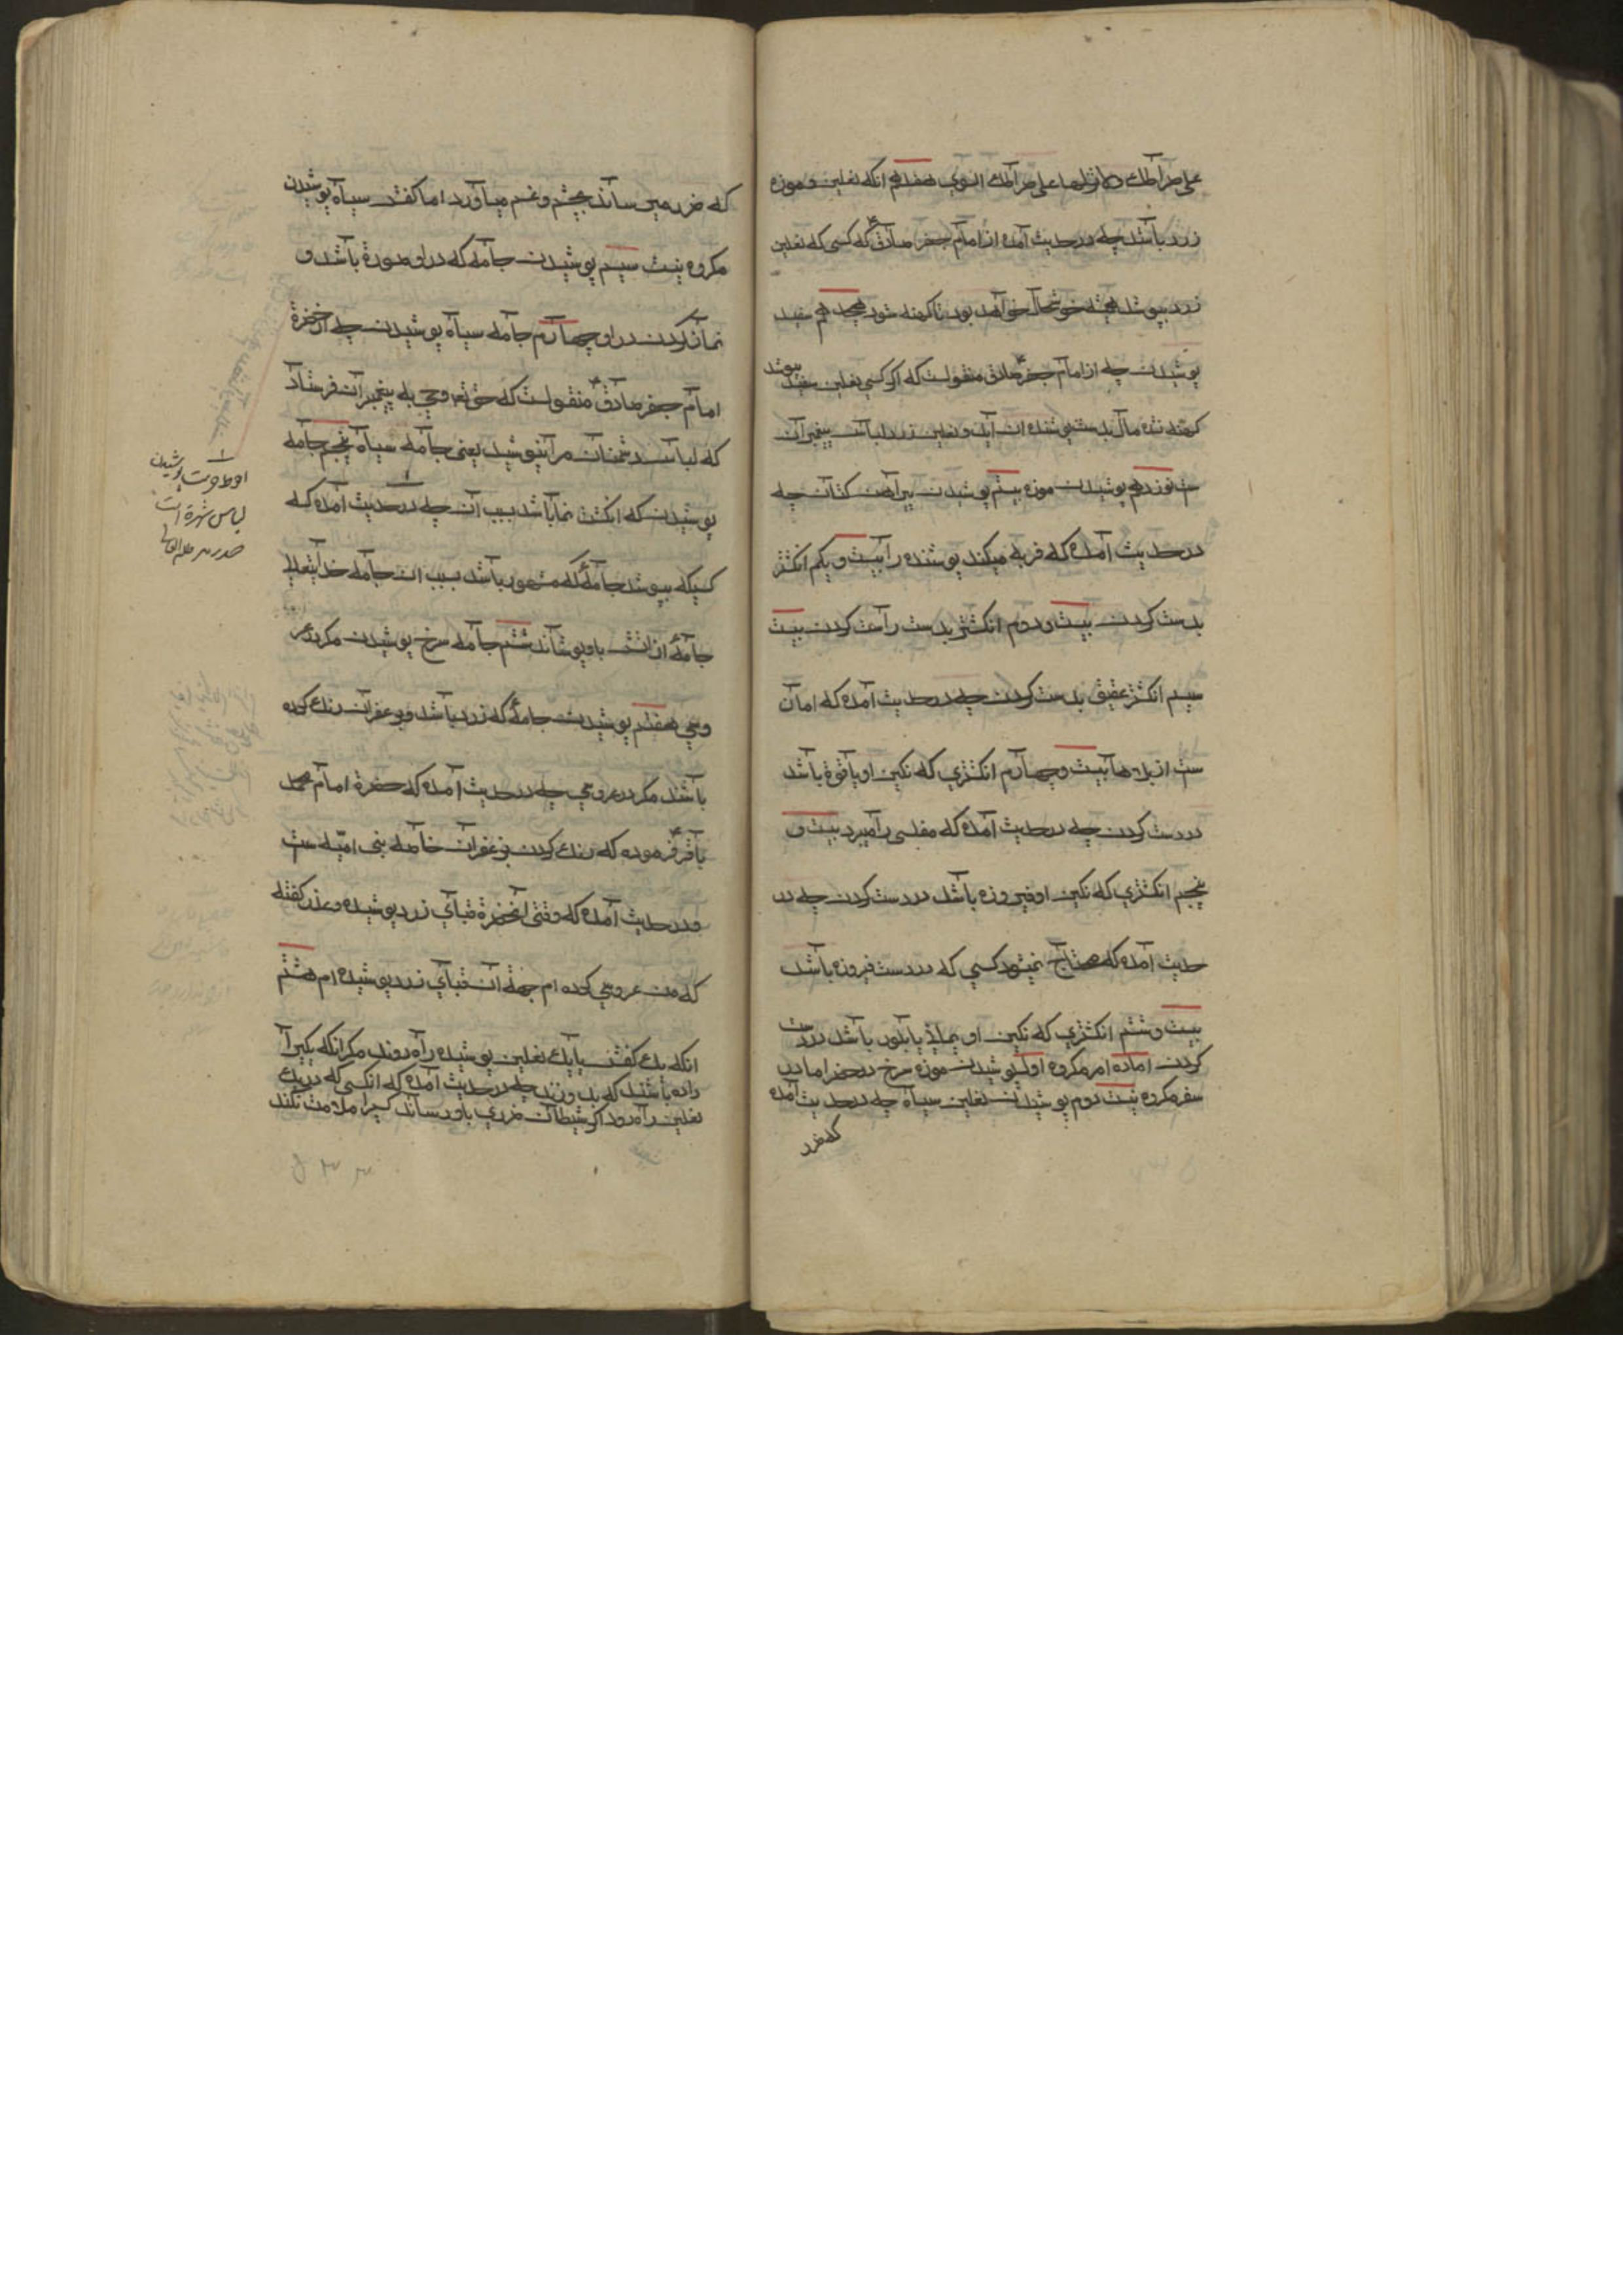 علی صراطک و لا تزلهما علی صراطک السوی هفدهم انکه نعلین و موزه
زرد باشد چه در حدیث آمده از امام جعفر صادق ع که کسی که نعلین
زرد بپوشد همیشه خوشحال خواهد بود تا کهنه شود هجدهم سفید
پوشیدن چه از امام جعفر صادق ع منقولست که اکر کسی نعلین سفید بپوشد
کهنه نشده مال بدست پوشنده ان آید و نعلین زرد لباس پیغمبران
ست نوزدهم پوشیدن موزه بیستم پوشیدن پیراهن کتان چه
در حدیث آمده که فربه میکند پوشنده را بیست و یکم انکشتر
بدست کردن بیست و دوم انکشتر بدست راست کردن بیست
سیم انکشتر عقیق بدست کردن چه در حدیث آمده که امان
ست از بلاها بیست و چهارم انکشتری که نکین او یاقوة باشد
در دست کردن چه در حدیث آمده که مفلسی را میبرد بیست و
پنجم انکشتری که نکین او فیروزه باشد در دست کردن چه در
حدیث آمده که محتاج نمیشود کسی که در دست فیروزه باشد
بیست و ششم انکشتری که نکین او جملد یا بلور باشد در دست
کردن اما ده امر مکروه اول پوشیدن موزه سرخ در حضر اما در
سفر مکروه نیست دوم پوشیدن نعلین سیاه چه در حدیث آمده
که ضرر
که ضرر میرساند بچشم و غم میآورد اما کفش سیاه پوشیدن
مکروه نیست سیم پوشیدن جامه که در او صورة باشد و
نماز کردن در او چهارم جامه سیاه پوشیدن چه از حضرة
امام جعفر صادق ع منقولست که حق تع وحی به پیغمبران فرستاد
که لباس دشمنان مرا نپوشید یعنی جامه سیاه پنجم جامه
پوشیدن که انکشت نما باشد بسبب آن چه در حدیث آمده که
کسیکه بپوشد جامهٔ که مشهور باشد بسبب ان جامه خدایتعالی
جامهٔ از اتش باو پوشاند ششم جامه سرخ پوشیدن مکر در عر
وسی هفتم پوشیدن جامهٔ که زرد باشد و بزعفران رنک کرده
باشد مکر در عروسی چه در حدیث آمده که حضرة امام محمد
باقر ع فرموده که رنک کردن بزعفران خاصه بنی امیّه ست
و در حدیث آمده که وقتی آنحضرة قبای زرد پوشیده و عذر کفته
که من عروسی کرده ام جهة آن قبای زرد پوشیده ام هشتم
انکه بیک کفش یا بیک نعلین پوشیده راه روند مکر انکه یکی را
داده باشند که بدوزند چه در حدیث آمده که انکسی که در یک
نعلین راه رود اکر شیطان ضرری باو رساند کسی را ملامت نکند
احوط حرمت پوشیدن
لباس شهرة است
صدر مد ظله العالی